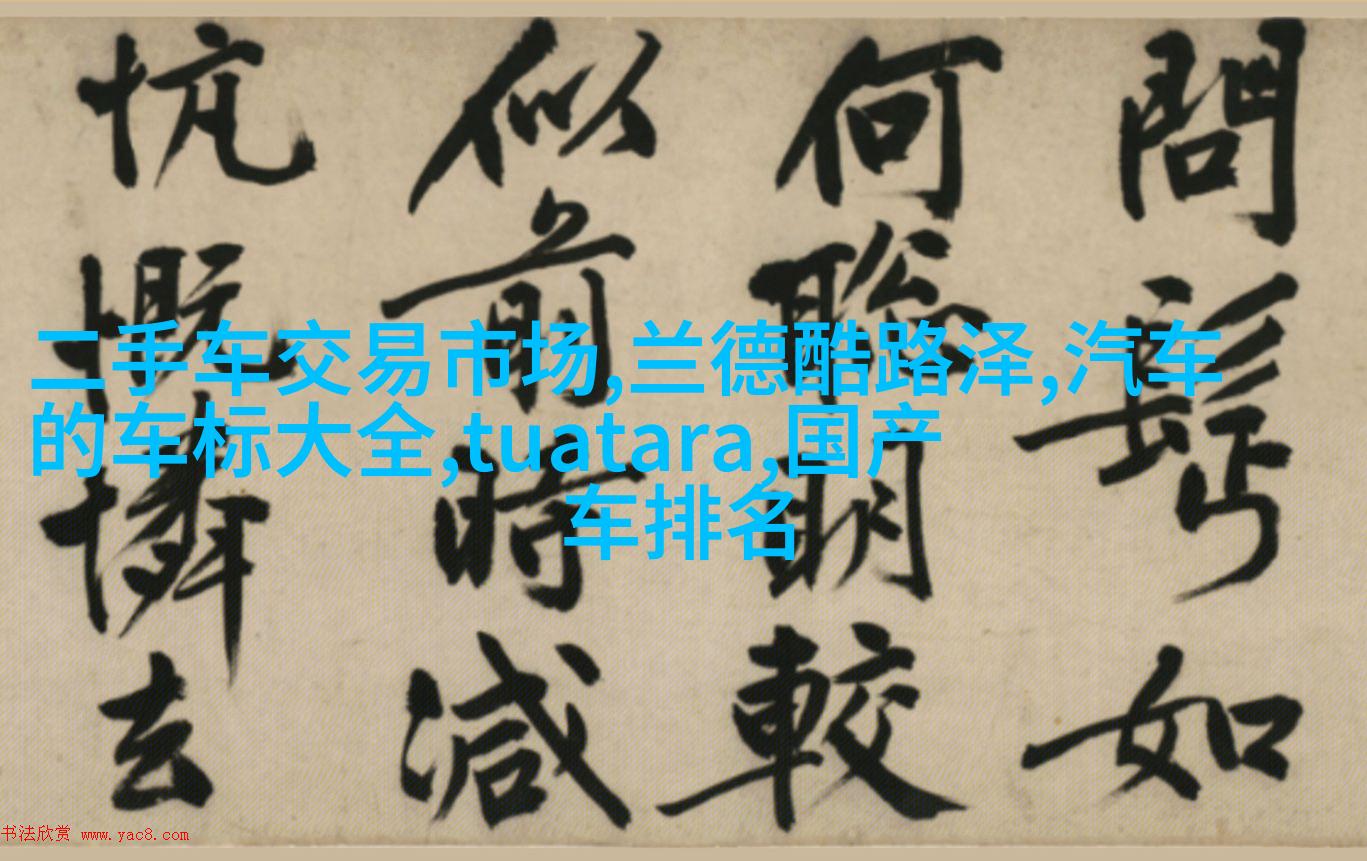 問如
何聰明較
似前時減
忼慨憐去
二手车交易市场,兰德酷路泽,汽车
的车标大全,tuatara,国产
车排名
书法欣赏 www.yac8.com